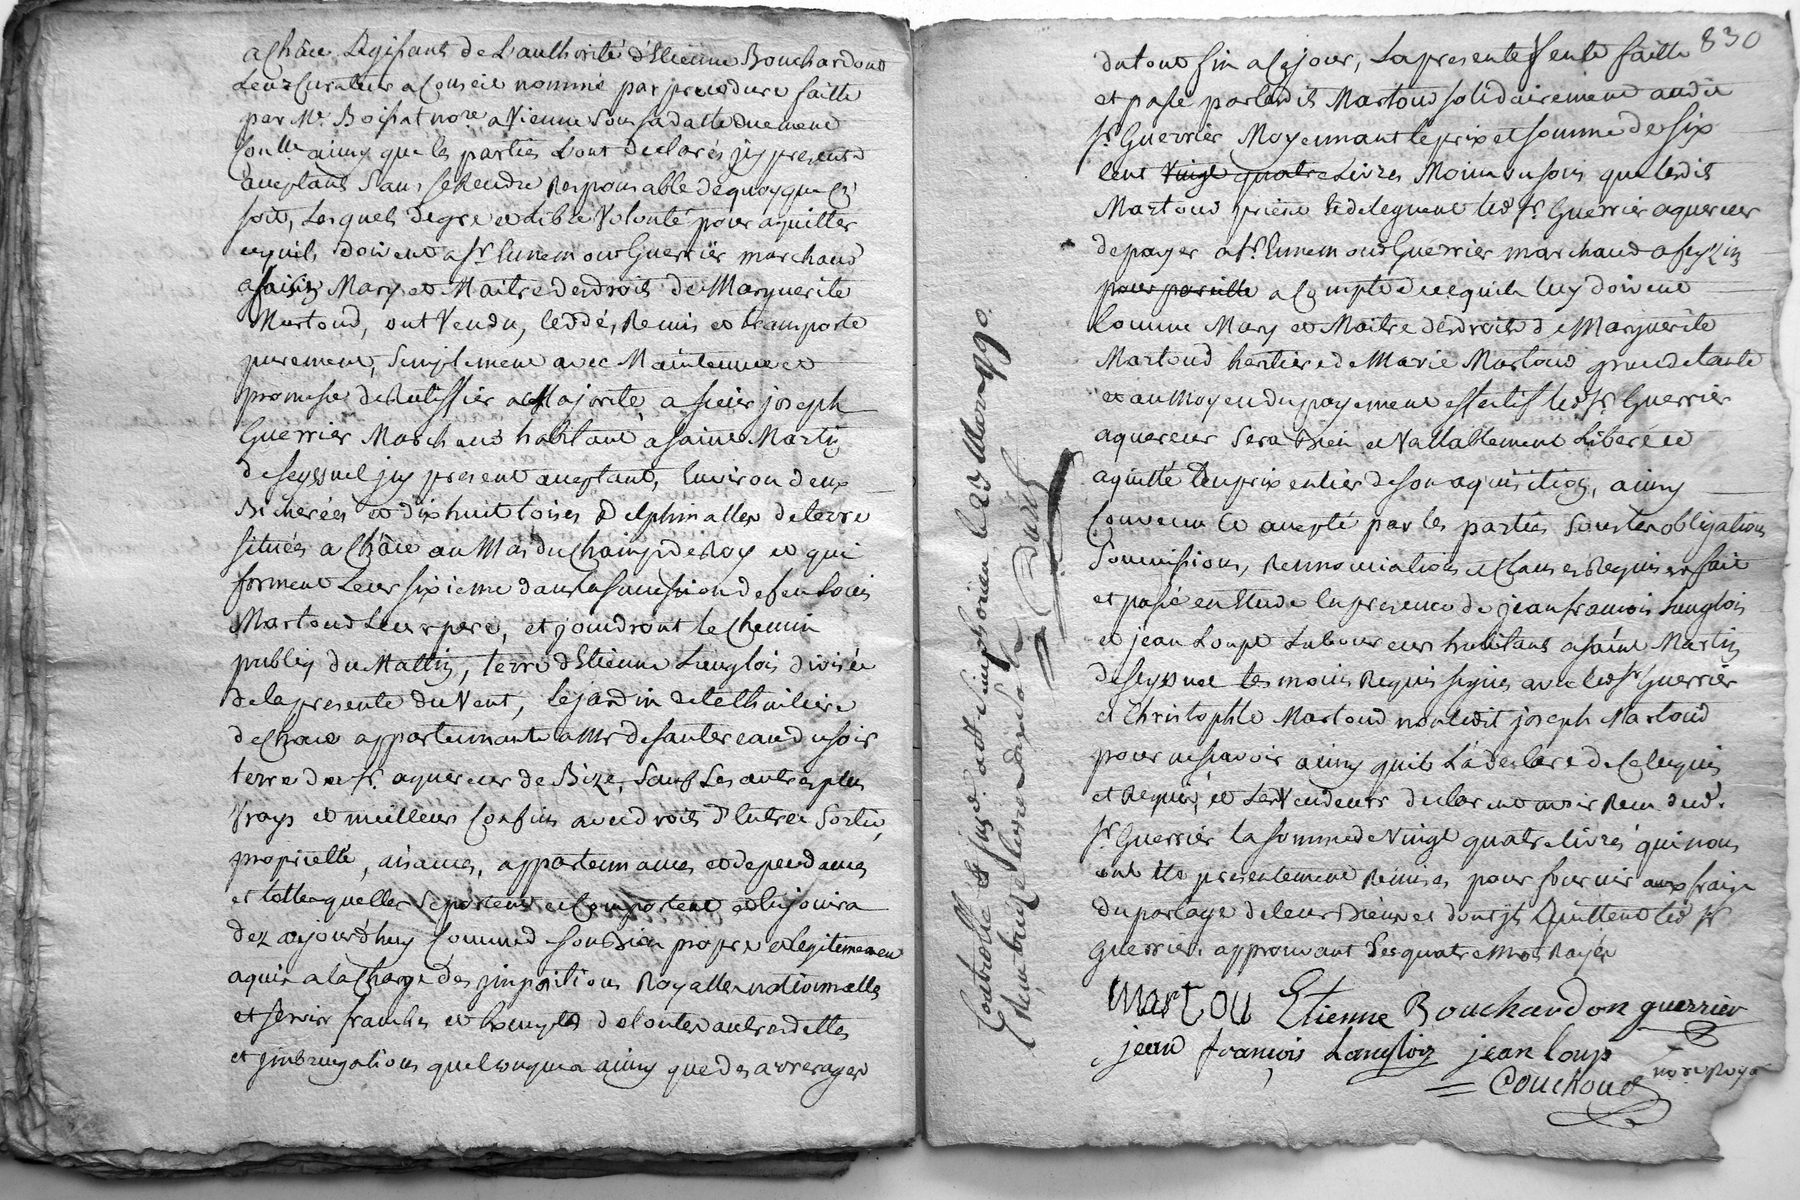 a Châce Agissants de L'authorité d'Etienne Bouchardond
Leur Curateur a Conseil nommé par procedure faitte
par Me. Boissat nore a Vienne sous sa datte duement
Conlle. ainsy que les parties L'ont declarés jcy present
acceptants sans se Rendre Responsable de quoy que Ce
soit, Lesquels de gré et Libre Volonté pour aquitter
ce quils doivent a sr. Ennemond Guerrier marchand
a faisin Mary et Maitre des droits de Marguerite
Martoud, ont Vendu, Ceddé, Remis et transporté
purement, simplement avec Maintenue et
promesse de Ratiffier a Majorité, a sieur joseph
Guerrier Marchand habitant a saint Martin
de seyssuel jcy present acceptant, Environ deux
Bicherées et dix huit toises Delphinalles de terre
situées a Châce au Mas du Champ de Roy et qui
forment Leur sixieme dans la succession de feu Louis
Martoud Leur pere, et joindront le Chemin
public du Mattin, terre d'Etienne Langlois divisée
de la presente du Vent, le jardin et le thuiliere
de Chace appartennante a Mr de santereau du soir
terre du sr. aquereur de Bize, sauf Les autres plus
Vrays et meilleurs Confins avec droits d'Entrée sortie,
proprietté, aisances, appartennances et dependances
et telle quelle se portent et Comportent et en jouira
dez aujourd'huy Comme de son Bien propre et legitimement
aquis a la Charge des jmpositions Royalles nationnalles
et servir franches et Exempts de toutes autres dettes
et jmbrugations quelconques ainsy que des arrerages
830
du tout fin a Ce jour, La presente Vente faitte
et passé par lesdits Martoud solidairement audit
sr. Guerrier Moyennant le prix et somme de six
Cent Vingt quatre Livres Moins un sous que lesdits
Martoud prient et deleguent ledt sr. Guerrier aquereur
de payer a sr. Ennemond Guerrier marchand a feyzin
pour pareille a Compte de ce quils luy doivent
Comme Mary et Maitre des droits de Marguerite
Martoud heritiere de Marie Martoud grande tante
et au Moyen du payement effectif ledt sr. Guerrier
aquereur sera Bien et Vallablement Liberé et
aquitté du prix entier de son aquisition, ainsy
Convenu et accepté par les parties sous les obligations
soummissions, Rennonciations et Clauses Requises fait
et passé en Etude En presence de jean francois Langlois
et jean Loup Laboureurs habitants a saint Martin
de seyssuel temoins Requis signés avec ledt sr Guerrier
et Christophle Martoud non ledit joseph Martoud
pour ne sçavoir ainsy quil L'a declaré de Ce Enquis
et Requis, et Les Vendeurs declarent avoir Reçu dudt.
sr. Guerrier la somme de Vingt quatre livres qui nous
ont été presentement Remises pour fournir aux fraix
du partage de leurs Biens et dont jls Quittent ledt sr
Guerrier. approuvant Les quatre mots Rayés
martou Etienne Bouchardon guerrier
jean françois Langloiz jean loup
couchoud nore Royal
Controllé et jns. a st simphorien le 23 Mars 1790.